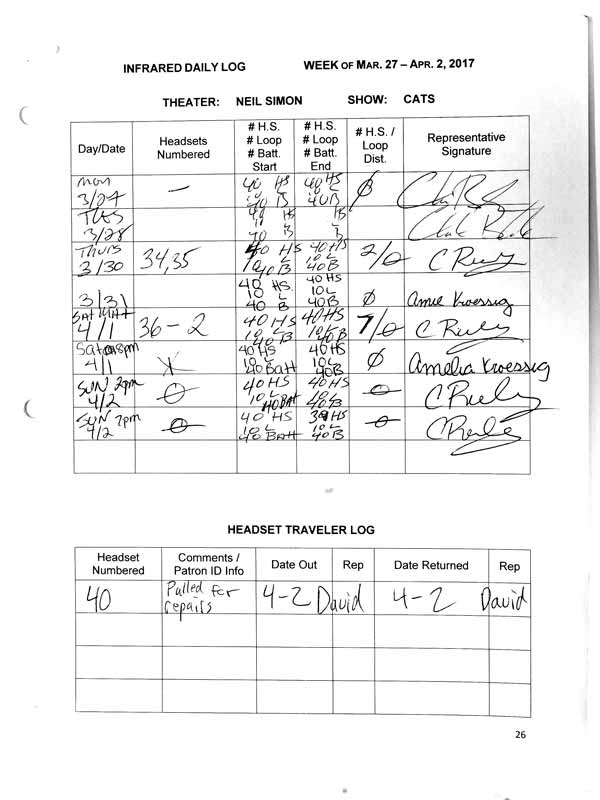 INFRARED DAILY LOG WEEK OF MAR. 27 – APR. 2, 2017
THEATER: NEIL SIMON SHOW: CATS
Day/Date
Headsets
Numbered
# H.S.
# Loop
# Batt.
Start
# H.S.
# Loop
# Batt.
End
# H.S. /
Loop
Dist.
Representative
Signature
Mon
3/27
—
40 HS
40 B
40 HS
10 L
40 B
Ø
TUES
3/28
40 H
10
40 B
H
B
THURS
3/30
34,35
40 HS
10 L
40 B
40 HS
10 L
40 B
2/0
C Riely
3/31
40 HS.
10 L
40 B
40 HS
10 L
40 B
Ø
Amie Kroessig
SAT MAT
4/1
36 – 2
40 HS
10 L
40 B
40 HS
10 L
40 B
7/0
C Riely
Sat 8pm
4/1
X
40 HS
10 L
40 Batt
40 HS
10 L
40 B
Ø
Amelia Kroessig
SUN 2pm
4/2
40 HS
10 L
40 Batt
40 HS
10 L
40 B
C Riely
SUN 7pm
4/2
40 HS
10 L
40 Batt
39 HS
10 L
40 B
C Riely
HEADSET TRAVELER LOG
Headset
Numbered
Comments /
Patron ID Info
Date Out
Rep
Date Returned
Rep
40
Pulled for
repairs
4-2
David
4-2
David
26